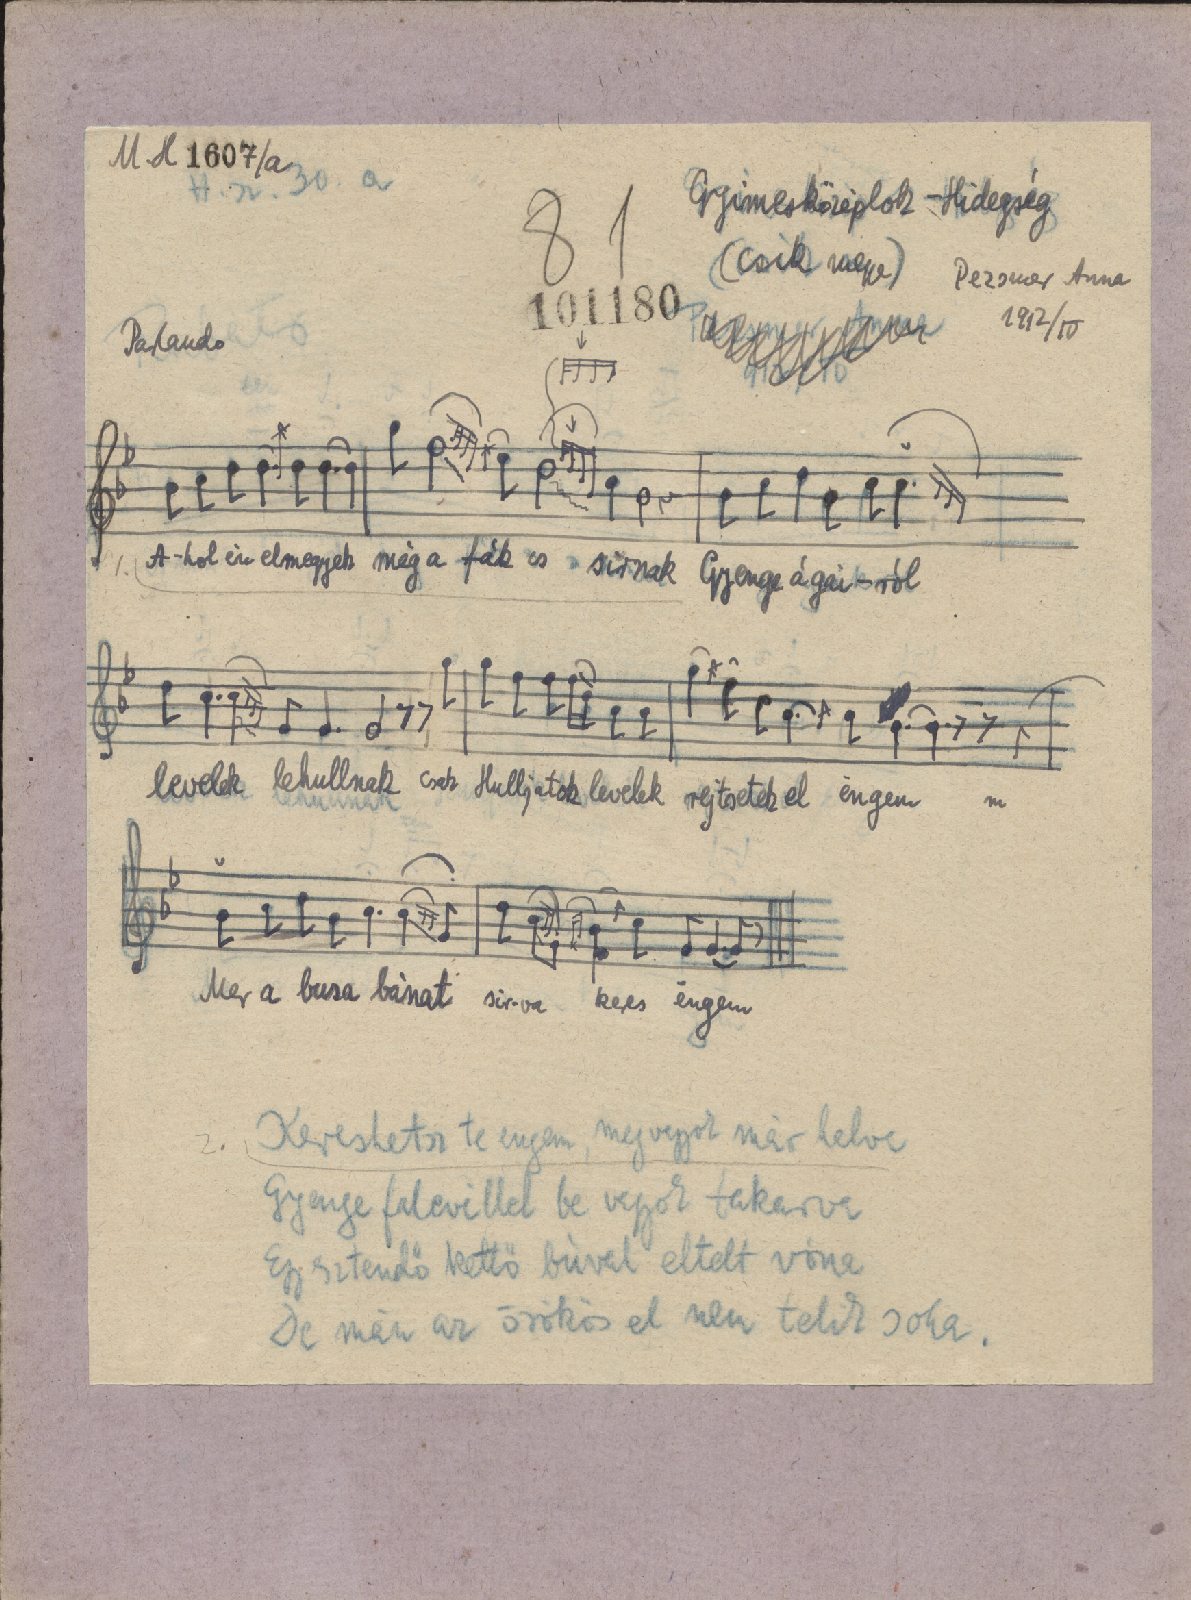 M.H 1607/a
H.sz. 30. a
81
Gyimesközéplok - Hidegség
(Csik megye)
101180
Pezsmer Anna
1912/IV
Parlando
1. A-hol én elmegyek még a fák es sirnak Gyenge ágai-ról
levelek lehullnak csak Hulljatok levelek rejtsetek el éngem m
Mer a busa bánat sir-va keres éngem
2. Kereshetsz te engem, megvagyok már halva
Gyenge falevillel be vagyok takarva
Egy esztendő kettő búval eltelt vóna
De már az örökös el nem telik soha.